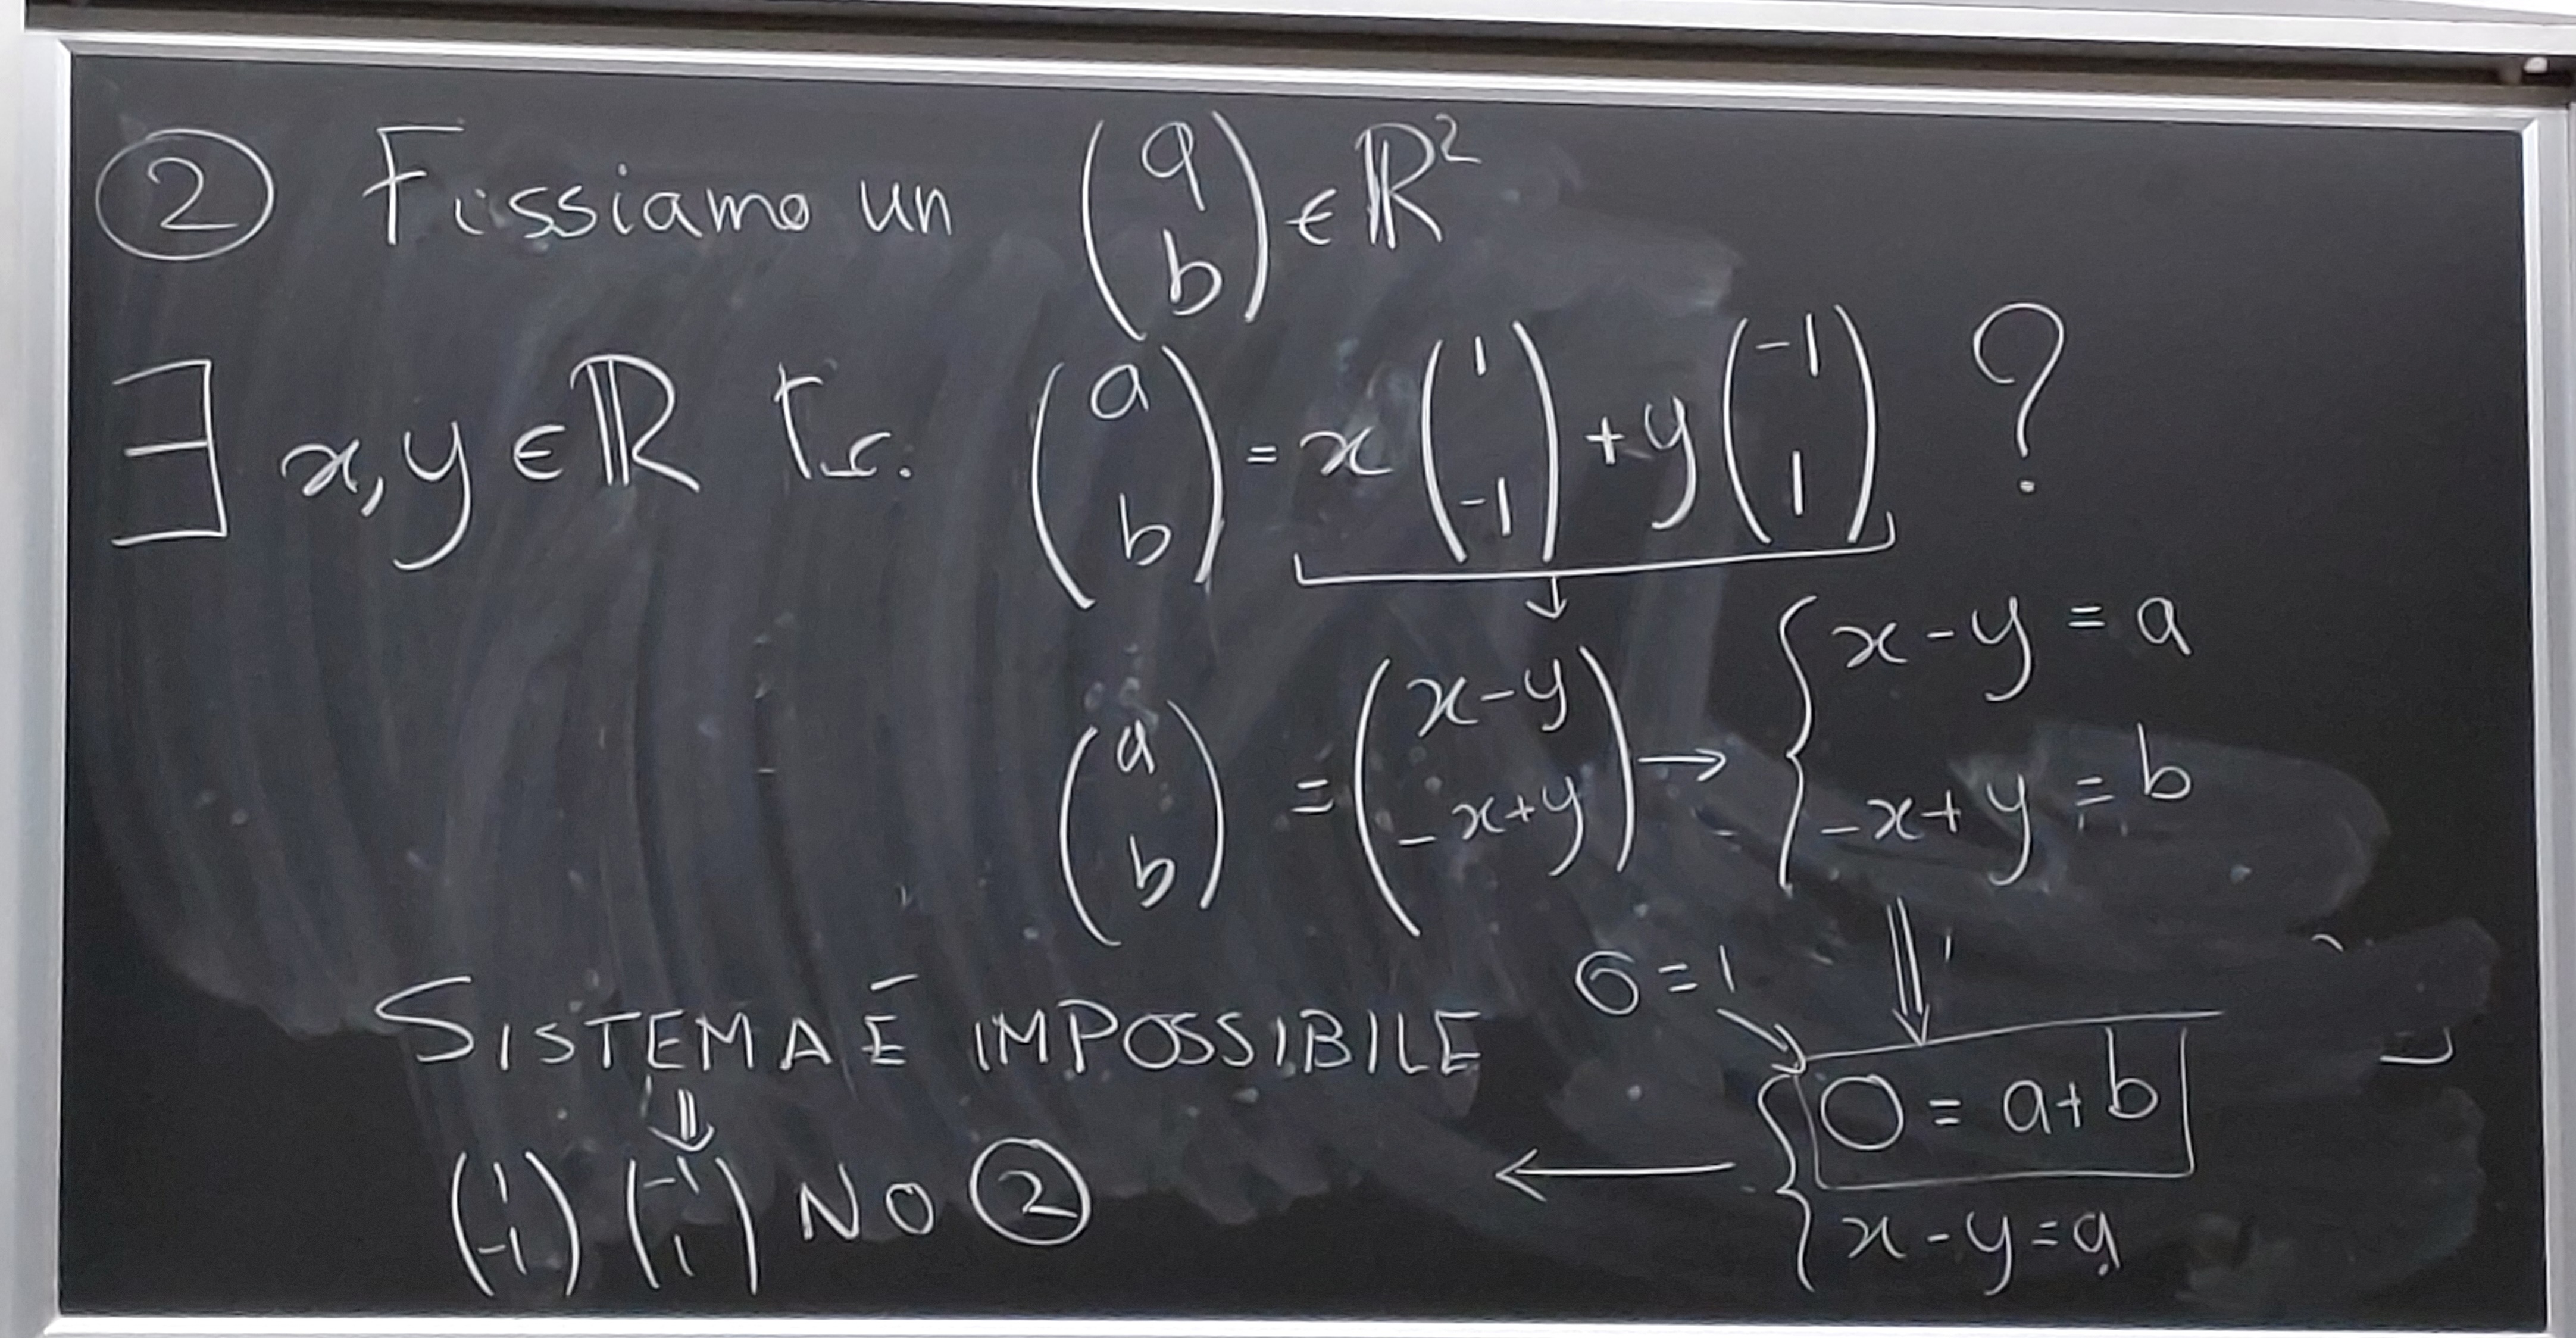 ② Fissiamo un (a b) ∈ ℝ²
∃ x, y ∈ ℝ t.c. (a b) = x (1 -1) + y (-1 1) ?
(a b) = (x-y -x+y) → { x-y = a -x+y = b
0 = 1
SISTEMA È IMPOSSIBILE ← { 0 = a+b x-y = a
⇓
(1 -1) (-1 1) NO ②